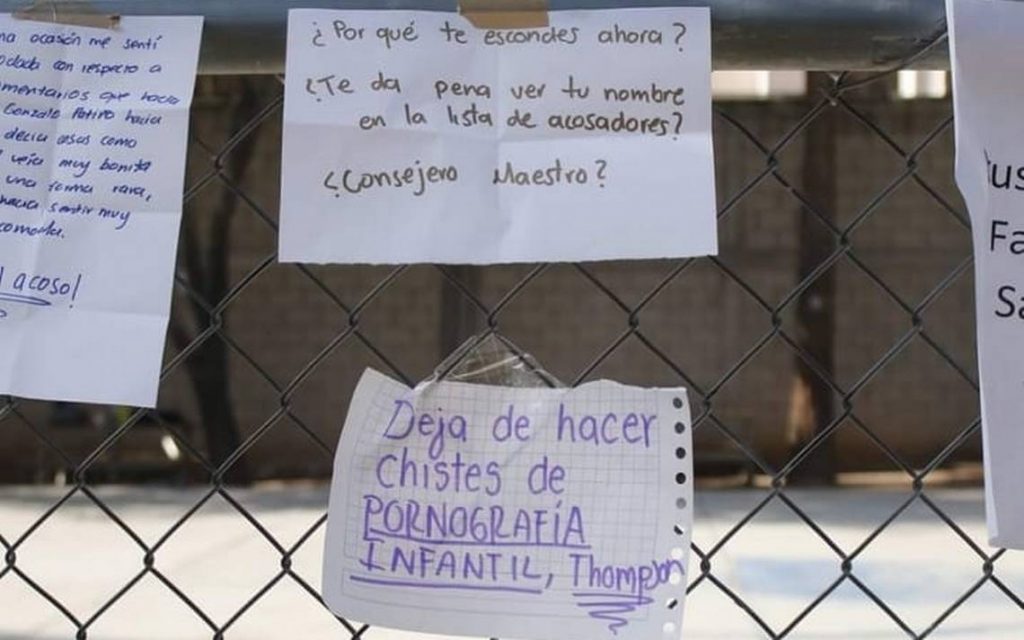 na ocasión me sentí
odada con respecto a
mentarios que hacía
Gonzalo Patiño hacia
decía cosas como
veía muy bonita
una forma rara,
hacía sentir muy
comoda.
acoso!
¿Por qué te escondes ahora?
¿Te da pena ver tu nombre
en la lista de acosadores?
¿Consejero Maestro?
Deja de hacer
chistes de
PORNOGRAFÍA
INFANTIL, Thompson
us
Fa
Sa